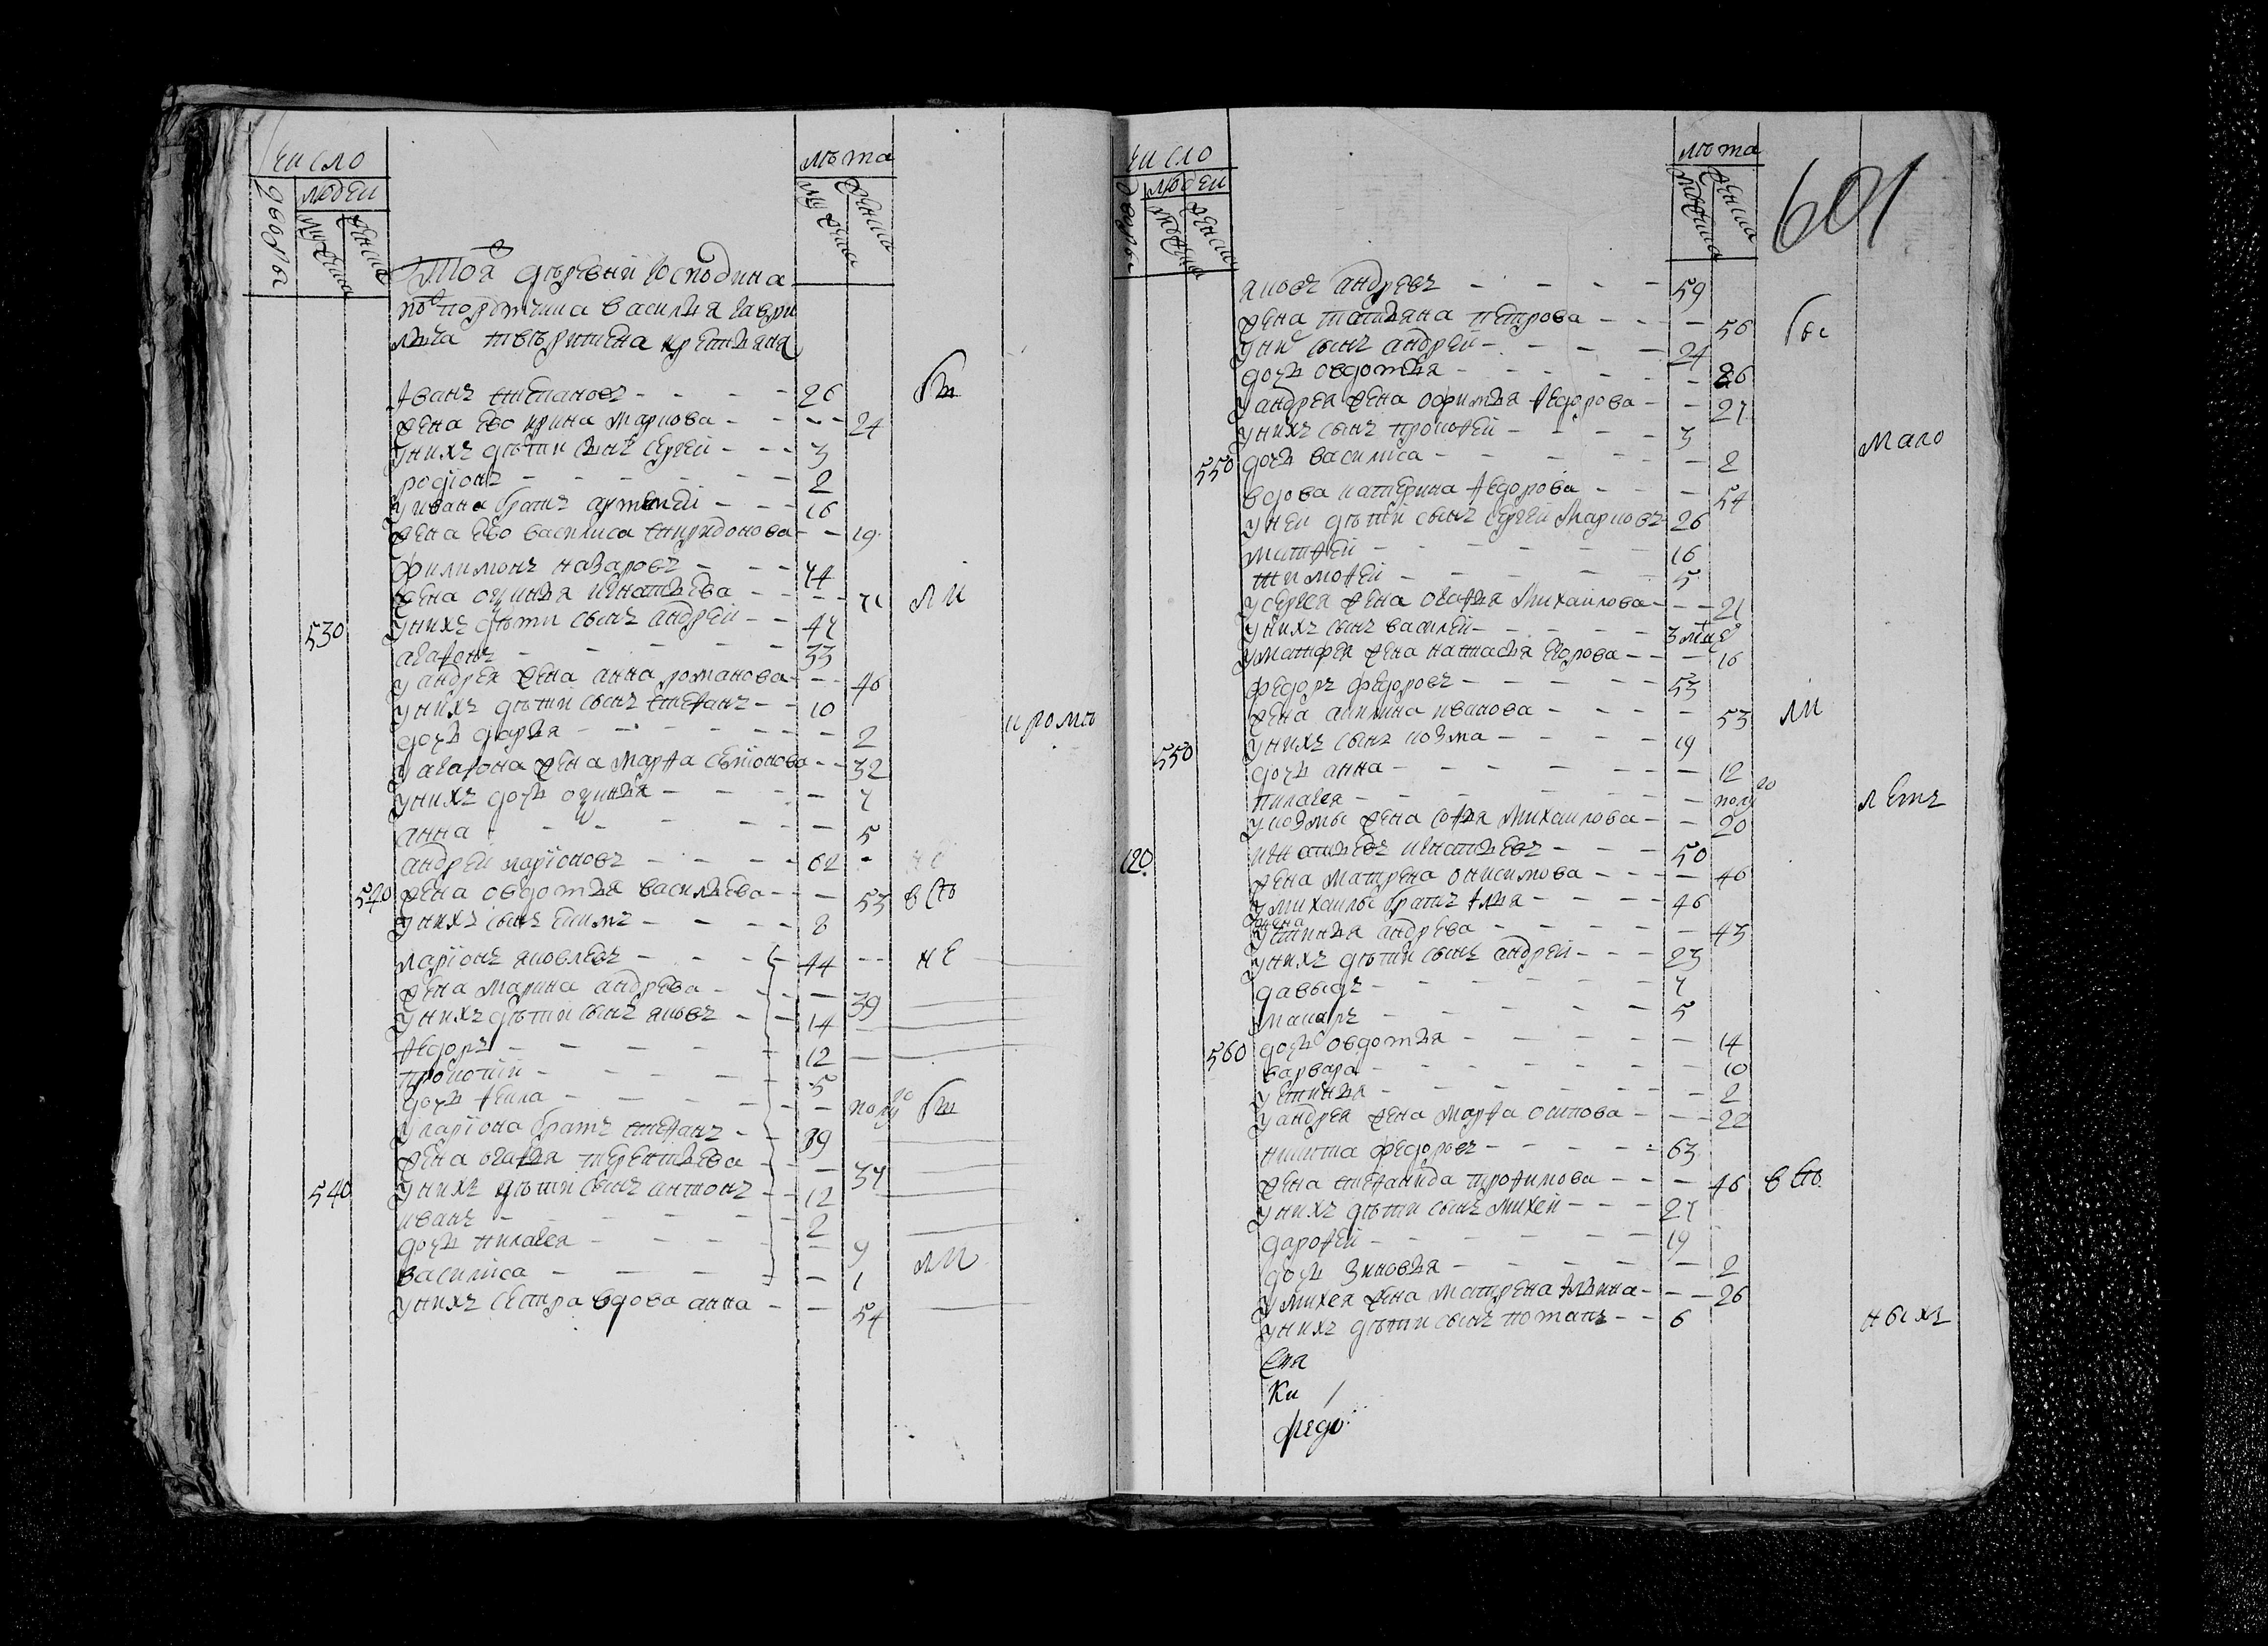 число
люден
лѣта
дворы
мужеска
женска
мужеска
женска
Тоя деревни господина
подпорутчика василья гаври
лича крестьяня
Иванъ степановъ - - - - 26 бы
жена ево ирина маркова - - - - 24
у нихъ дѣти сынъ сергеи - - - 3
родіонъ - - - - - - 2
у ивана братъ артемеи - - 16
жена ево василиса спиридонова - - 19
филимонъ назаровъ - - - 74
жена огинья игнатьева - - - - 71 ли
530 у нихъ дѣти сынъ андреи - - 47
агафонъ - - - - - 33
у андрея жена анна романова - - - 46
у нихъ дѣти сынъ стефанъ - - 10
кромѣ
дочь дарья - - - - - - - 2
у агафона жена марфа семіонова - - 32
у нихъ дочь огинья - - - - 7
анна - - - - - - 5
андреи ларіоновъ - - - - 62 - не
540 жена овдотья васильева - - - 53 всѣ
у нихъ сынъ екимъ - - - - 8
ларіонъ яковлевъ - - - - 44 -- не
жена марина андрева - - - - 39
у нихъ дѣти сынъ яковъ - - 14
федоръ - - - - - 12
прокопіи - - - - - 5
дочь фекла - - - - - - полуго бы
у ларіона братъ стефанъ - - 39
жена агафья терентьева - - 37
540 у нихъ дѣти сынъ антонъ - - 12
иванъ - - - - - 2
дочь пилагея - - - - - 9
василиса - - - - - 1 ли
у нихъ сестра вдова анна - - 54
число
люден
лѣта
дворы
мужеска
женска
мужеска
женска
601
яковъ андревъ - - - - 59
жена татьяна петрова - - - - 56 бы
у ни сынъ андреи - - - - 24
дочь овдотья - - - - - - 26
у андрея жена офимья федорова - - 27
у нихъ сынъ прокофеи - - - - 3
мало
550 дочь василиса - - - - - - 2
вдова катерина федорова - - - 54
у неи дѣти сынъ сергеи марковъ - 26
матфеи - - - - - - 16
тимофеи - - - - - 5
у сергея жена агафья михаилова - - - 21
у нихъ сынъ василеи - - - - - 3 мце
у матфея жена настасья егорова - - - 16
федоръ федоровъ - - - - - 53
жена акилина иванова - - - - - 53 ли
550 у нихъ сынъ козма - - - - 19
дочь анна - - - - - - 12
пилагея - - - - - - - полуго
летъ
у козмы жена софья михаилова - - - 20
120 игнатьевъ - - - 50
жена матрена онисимова - - - - - 46
у михаилы братъ илья - - - - 46
жена
устинья андрева - - - - - 43
у нихъ дѣти сынъ андреи - - - 23
давыдъ - - - - - - 7
макаръ - - - - - 5
560 дочь овдотья - - - - - - 14
варвара - - - - - - - 10
устинья - - - - - - 2
у андрея жена марфа осипова - - - - 22
никита федоровъ - - - - 63
жена степанида трофимова - - - - 46 всѣ
у нихъ дѣти сынъ михеи - - - 27
дарофеи - - - - - - 19
дочь зиновья - - - - - - 2
у михея жена матрена ильина - - - 26
у нихъ дѣти сынъ потапъ - - 6
ныхъ
Ки
федо